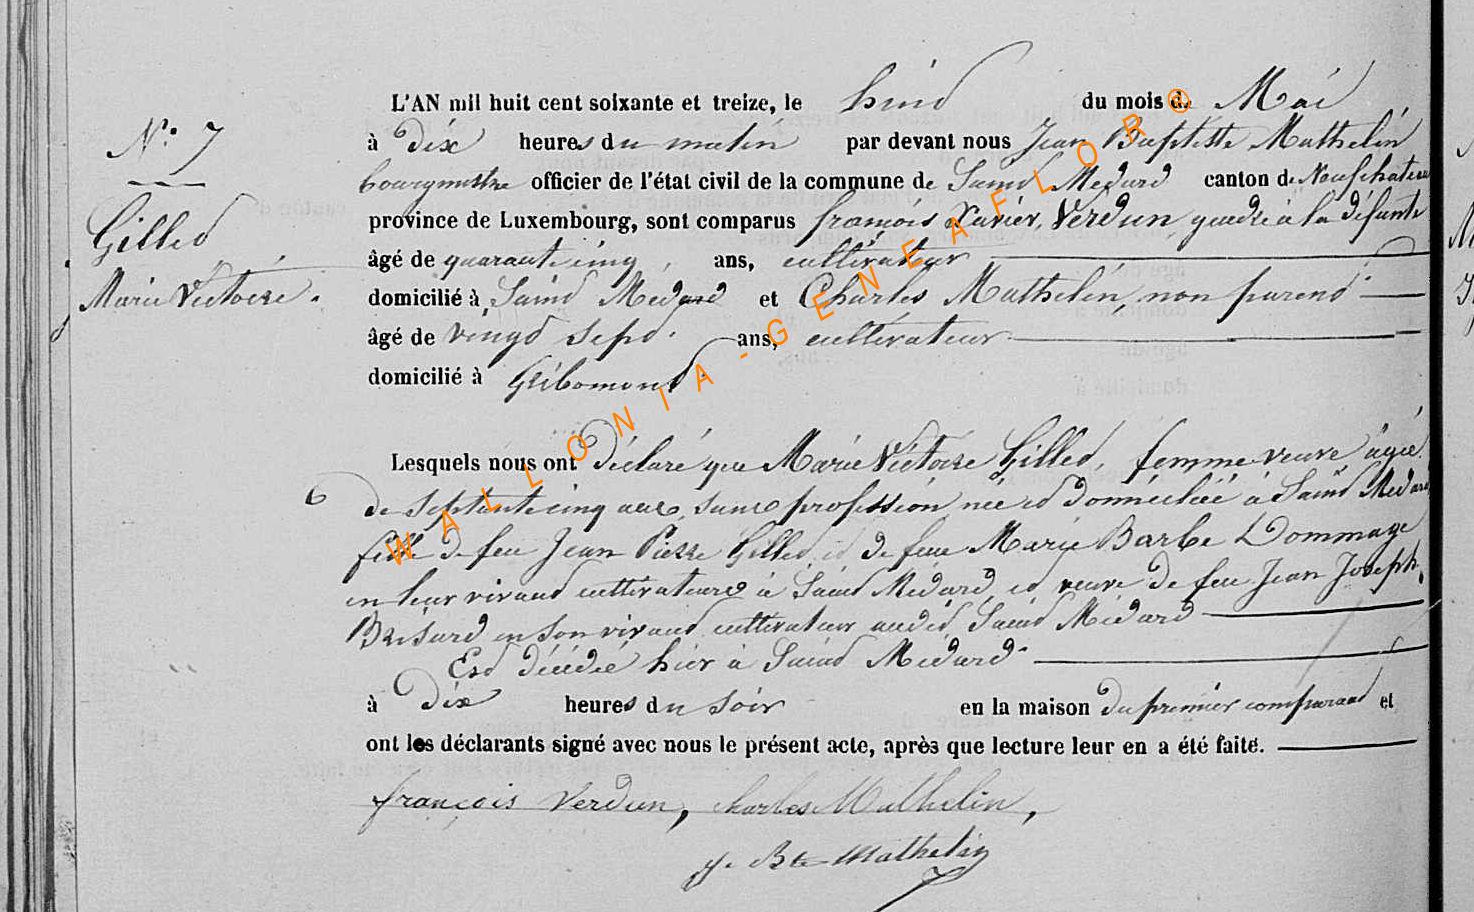 L'AN mil huit cent soixante et treize, le huid du mois de Mai
N.º 7
à dix heures du matin par devant nous Jean Baptiste Mathelin
bourgmestre officier de l'état civil de la commune de Saind Medard canton de Neufchateau
Gilled
province de Luxembourg, sont comparus françois Xavier Verdun, gendre à la défunte
âgé de quarante cinq ans, cultivateur
Marie Victoire.
domicilié à Saind Medard et Charles Mathelin, non parend
âgé de vingd sepd ans, cultivateur
domicilié à Gribomond
Lesquels nous ont déclaré que Marie Victoire Gilled, femme veuve âgée
de septante cinq ans, sans profession née ed domiciliée à Saind Medard
fille de feu Jean Pierre Gilled, ed de feue Marie Barbe Dommage
en leur vivand cultivateurs à Saind Médard, ed veuve de feu Jean Joseph
Brisard en son vivand cultivateur audid Saind Médard
Esd décédée hier à Saind Médard.
à dix heures du soir en la maison du premier comparand et
ont les déclarants signé avec nous le présent acte, après que lecture leur en a été faite.
françois Verdun, charles Mathelin,
J. Bte Mathelin
WALLONIA-GENEAFLOR®